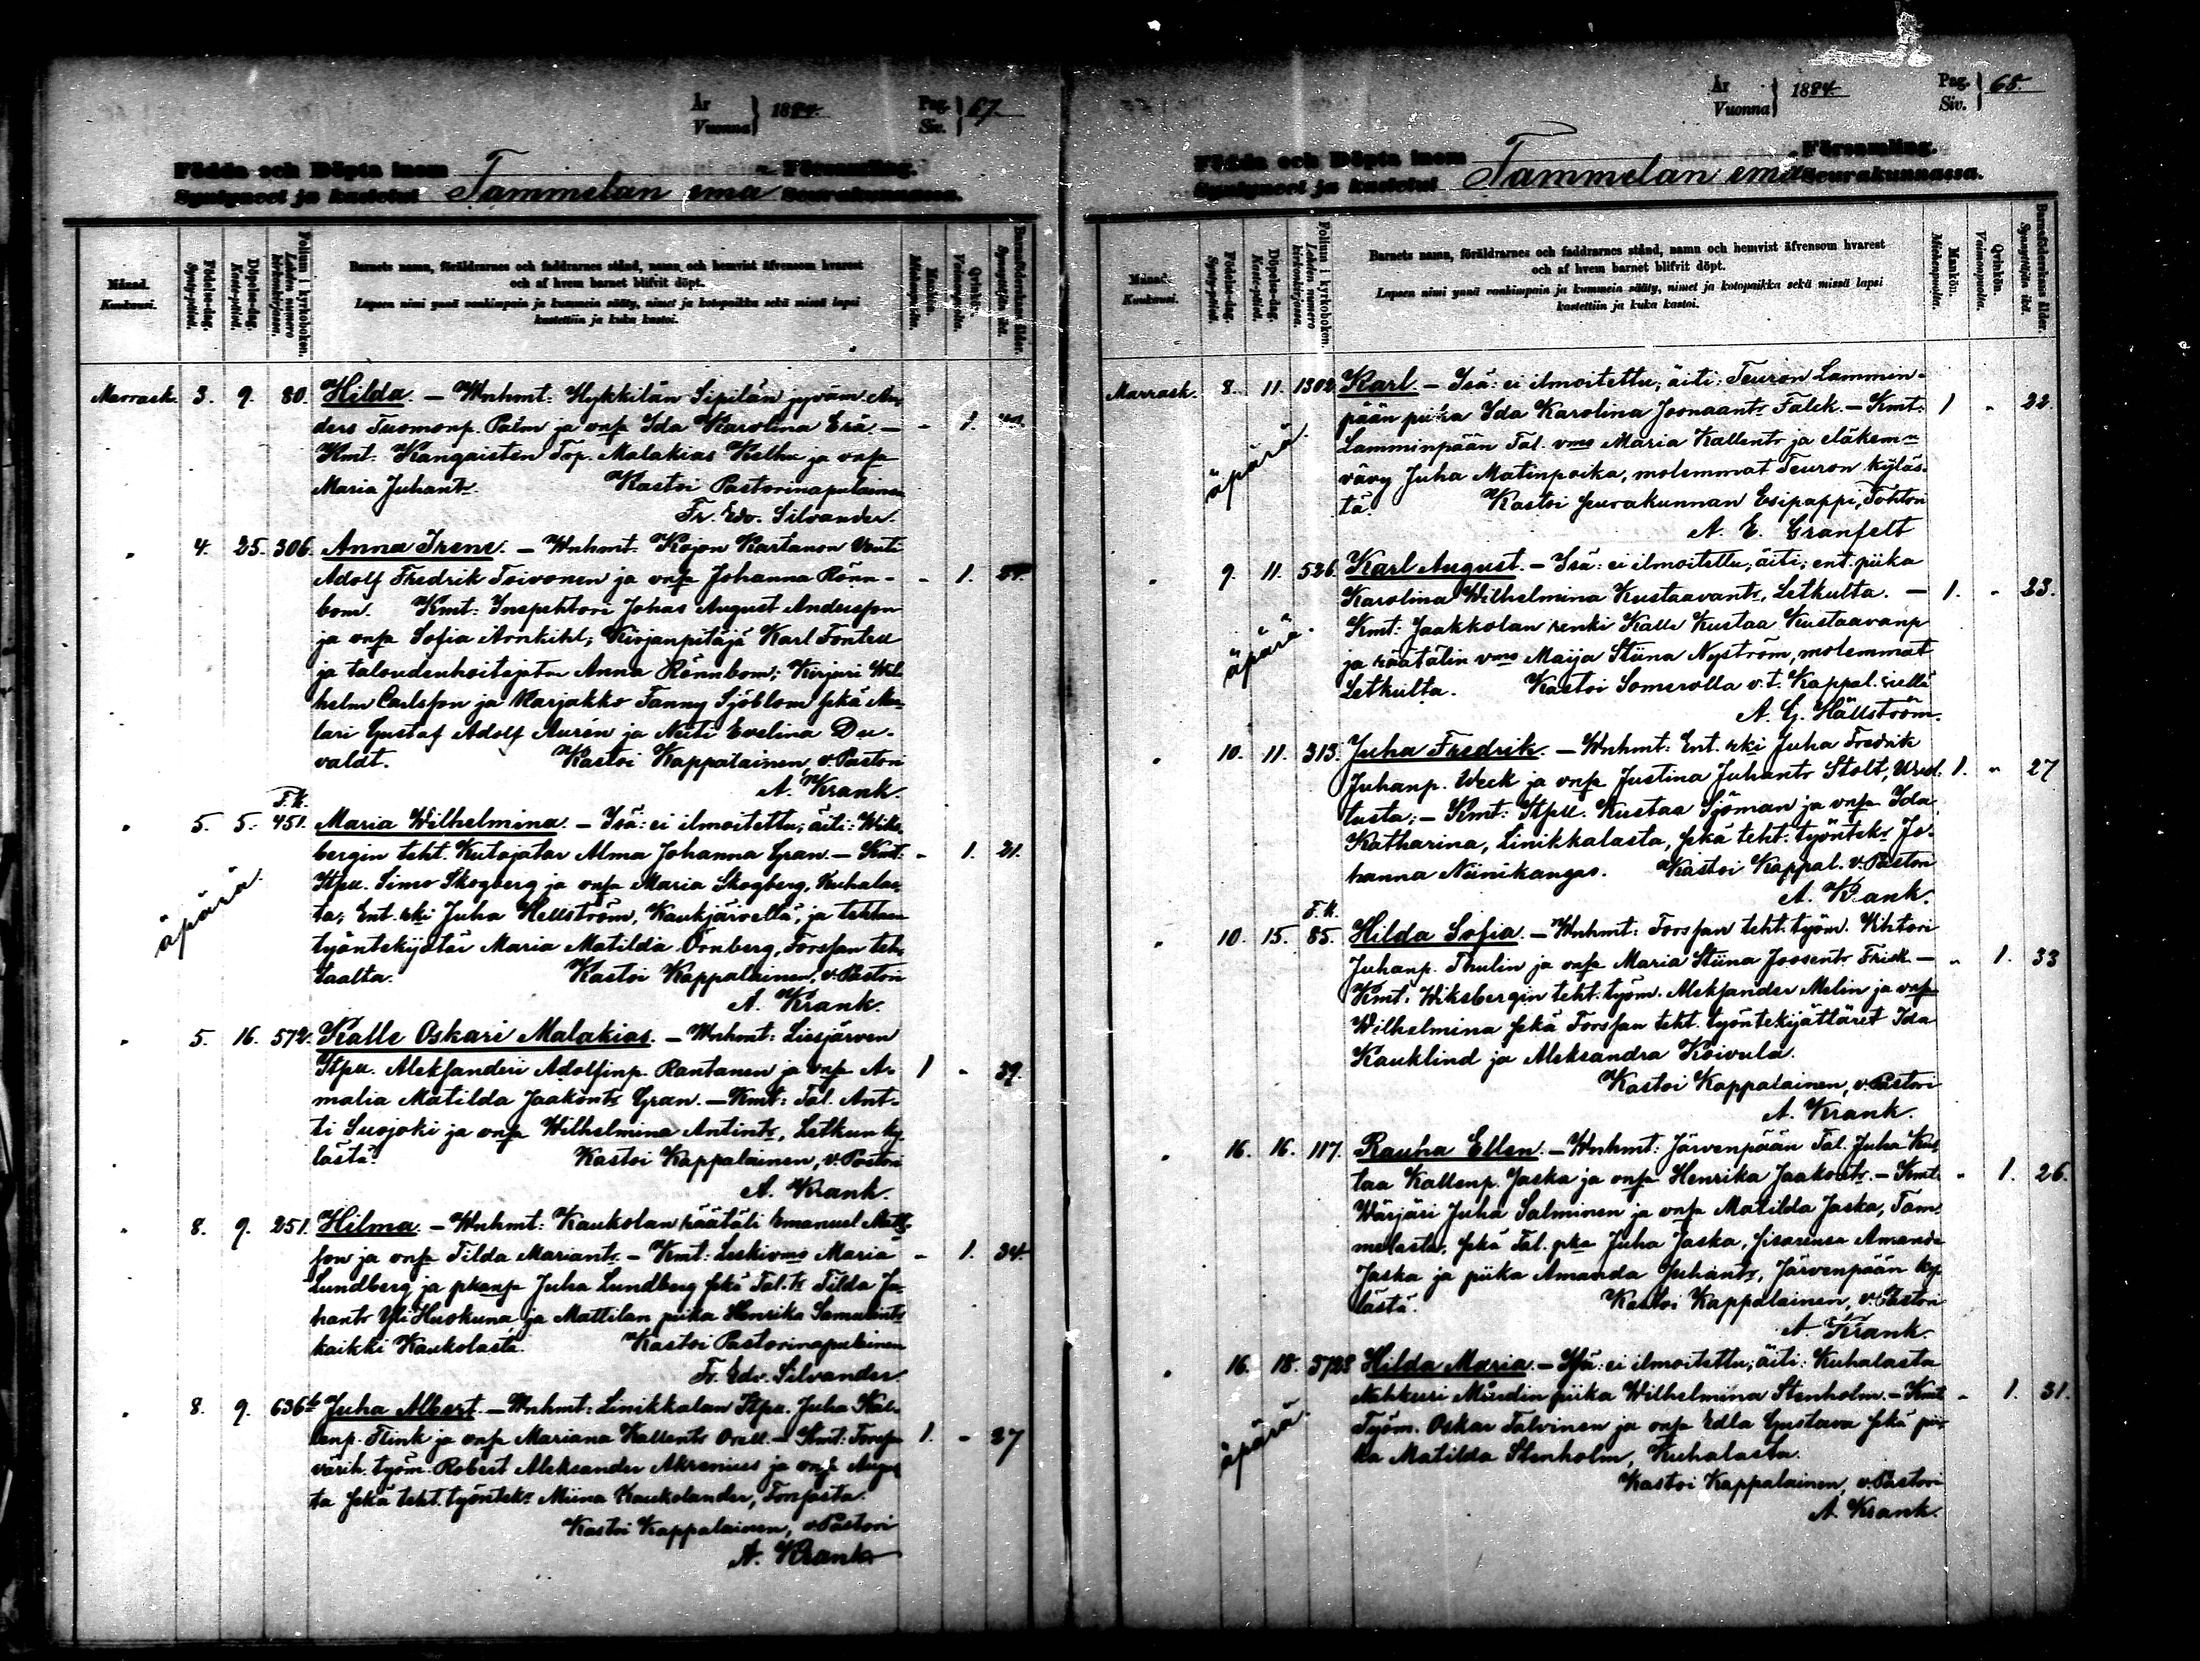 År
Vuonna } 1884.
Pag.
Siv. } 67.
Födda och Döpta inom Församling.
Syntyneet ja kastetut Tammelan emä Seurakunnassa.
Månad.
Kuukausi.
Födelse-dag.
Synty-päivä.
Döpelse-dag.
Kaste-päivä.
Folium i kyrkoboken.
Lehden numero kirkonkirjassa.
Barnets namn, föräldrarnes och faddrarnes stånd, namn och hemvist äfvensom hvarest
och af hvem barnet blifvit döpt.
Lapsen nimi ynnä vanhimpain ja kummein sääty, nimet ja kotopaikka sekä missä lapsi
kastettiin ja kuka kastoi.
Mankön.
Miehenpuolia.
Qvinkön.
Vaimonpuolia.
Barnaföderskans ålder.
Synnyttäjän ikä.
Marrask. 3. 9. 80. Hilda. – Wnhmt: Hykkilän Sipilän jyväm. An-
ders Tuomonp. Palm ja vnsa Ida Karolina Erä. – - 1.
Kmt: Kangaisten Torp. Malakias Kelhu ja vnsa
Maria Juhantr. Kastoi Pastorinapulainen
Fr. Edv. Silvander.
" 4. 25. 306. Anna Irene. – Wnhmt: Kojon Kartanon Vouti
Adolf Fredrik Toivonen ja vnsa Johanna Rönn- - 1.
bom. Kmt: Inspehtori Johas August Andersson
ja vnsa Sofia Arnkihl; Kirjanpitäjä Karl Fontell
ja taloudenhoitajatar Anna Rönnbom; Kirjuri Wil-
helm Carlsson ja Marjakko Fanny Sjöblom sekä Ma-
lari Gustaf Adolf Aurén ja Neiti Evelina Du-
valdt. Kastoi Kappalainen, v. Pastori
A. Krank.
T. K.
" 5. 5. 451. Maria Wilhelmina. – Isä: ei ilmoitettu; äiti: Wiks-
bergin teht. Kutojatar Alma Johanna Gran. – Kmt: - 1. 21.
äpärä
Itpll. Simo Skogberg ja vnsa Maria Skogberg, Kuhalas-
ta; Ent. rki Juha Hellström, Kaukjärveltä, ja tehtaan
työntekijätär Maria Matilda Örnberg, Forssan teh-
taalta. Kastoi Kappalainen, v. Pastori
A. Krank.
" 5. 16. 572. Kalle Oskari Malakias. – Wnhmt: Liesjärven
Itpll. Aleksanderi Adolfinp. Rantanen ja vnsa A- 1 - 39.
malia Matilda Jaakontr Gran. – Kmt: Tal. Ant-
ti Suojoki ja vnsa Wilhelmina Antintr, Letkun ky-
lästä. Kastoi Kappalainen, v. Pastori
A. Krank.
" 8. 9. 251. Hilma. – Wnhmt: Kaukolan räätäli Emanuel Matts-
son ja vnsa Tilda Mariantr. – Kmt: Leskivmo Maria - 1. 34
Lundberg ja pkansa Juha Lundberg sekä Tal. tr Tilda Ju-
hantr Yli Huokuna ja Mattilan piika Henrika Samulintr
kaikki Kaukolasta. Kastoi Pastorinapulainen
Fr. Edv. Silvander
" 8. 9. 636 b Juha Albert. – Wnhmt: Linikkalan Itpll. Juha Kal-
lenp. Flink ja vnsa Mariana Kallentr Orell. – Kmt: Forssa 1. - 27
värih. työm. Robert Aleksander Akrenius ja vnsa Augus-
ta sekä teht. työntek. Miina Kaukolander, Forssasta.
Kastoi Kappalainen, v. Pastori
A. Krank
År
Vuonna } 1884.
Pag.
Siv. } 68.
Födda och Döpta inom Församling.
Syntyneet ja kastetut Tammelan emä Seurakunnassa.
Månad.
Kuukausi.
Födelse-dag.
Synty-päivä.
Döpelse-dag.
Kaste-päivä.
Folium i kyrkoboken.
Lehden numero kirkonkirjassa.
Barnets namn, föräldrarnes och faddrarnes stånd, namn och hemvist äfvensom hvarest
och af hvem barnet blifvit döpt.
Lapsen nimi ynnä vanhimpain ja kummein sääty, nimet ja kotopaikka sekä missä lapsi
kastettiin ja kuka kastoi.
Mankön.
Miehenpuolia.
Qvinkön.
Vaimonpuolia.
Barnaföderskans ålder.
Synnyttäjän ikä.
Marrask. 8. 11. 1302. Karl. – Isä: ei ilmoitettu; äiti: Teuron Lammin-
pään piika Ida Karolina Joonaantr Falck. – Kmt: 1 - 22.
äpärä
Lamminpään Tal. vmo Maria Kallentr ja eläkem-n
vävy Juha Matinpoika, molemmat Teuron kyläs-
tä. Kastoi seurakunnan Esipappi, Tohtori
A. E. Granfelt
" 9. 11. 526. Karl August. – Isä: ei ilmoitettu; äiti: ent. piika
Karolina Wilhelmina Kustaavantr, Letkulta. – 1. - 23.
äpärä
Kmt: Jaakkolan renki Kalle Kustaa Kustaavanp
ja räätälin vmo Maija Stiina Nyström, molemmat
Letkulta. Kastoi Somerolla v. t. Kappal. siellä
A. G. Hällström.
" 10. 11. 313. Juha Fredrik. – Wnhmt: Ent. rki Juha Fredrik
Juhanp. Weck ja vnsa Justina Juhantr Stolt, 1. - 27
lasta; – Kmt: Itpll. Kustaa Sjöman ja vnsa Ida
Katharina, Linikkalasta, sekä teht. työntek. Jo-
hanna Niinikangas. Kastoi Kappal. v. Pastori
A. Krank.
T. K.
" 10. 15. 85. Hilda Sofia. – Wnhmt: Forssan teht. työm. Vihtori
Juhanp. Thulin ja vnsa Maria Stiina Joosentr Frisk. – - 1. 33
Kmt: Wiksbergin teht. työm. Aleksander Melin ja vnsa
Wilhelmina sekä Forssan teht. työntekijättäret Ida
Kauklind ja Aleksandra Koivula.
Kastoi Kappalainen, v. Pastori
A. Krank.
" 16. 16. 117. Rauha Ellen. – Wnhmt: Järvenpään Tal. Juha Kus-
taa Kallenp. Jaska ja vnsa Henrika Jaakontr. – Kmt: - 1. 26.
Wärjäri Juha Salminen ja vnsa Matilda Jaska, Tam-
melasta, sekä Tal. pka Juha Jaska, sisarensa Amanda
Jaska ja piika Amanda Juhantr, Järvenpään ky-
lästä. Kastoi Kappalainen, v. Pastori
A. Krank.
" 16. 18. Hilda Maria. – Isä: ei ilmoitettu; äiti: Kuhalasta
Nahkuri Mündin piika Wilhelmina Stenholm. – Kmt: - 1. 31.
äpärä
Työm. Oskar Talvinen ja vnsa Edla Gustava sekä pii-
ka Matilda Stenholm, Kuhalasta.
Kastoi Kappalainen, v. Pastori
A. Krank.